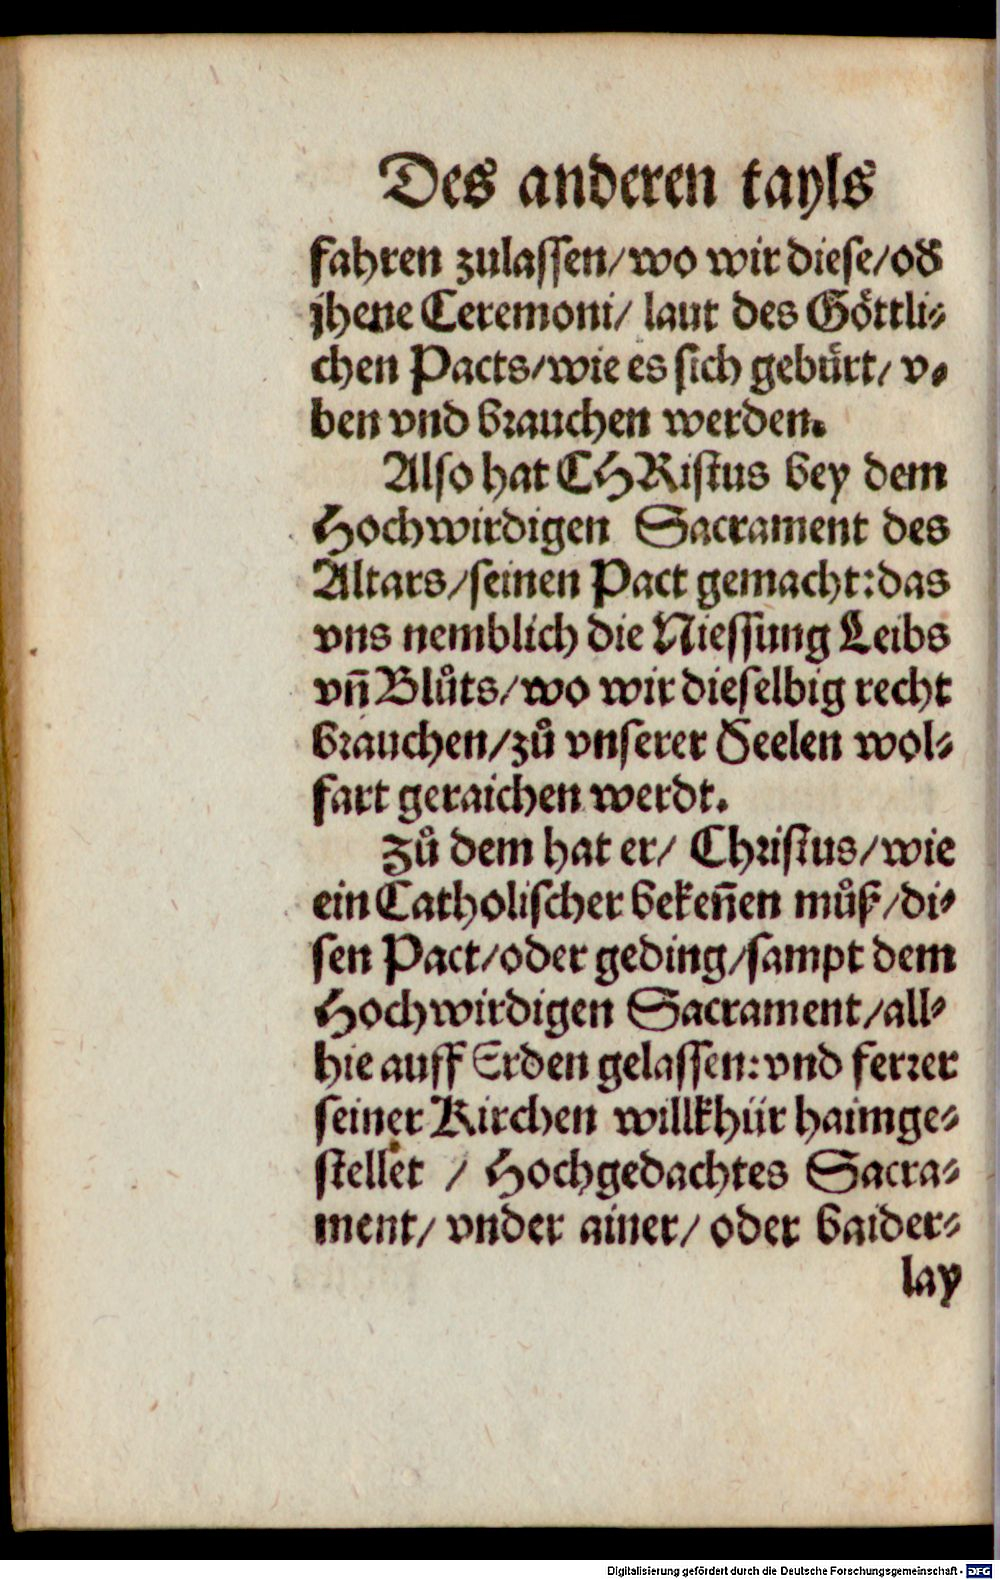 Des anderen tayls
fahren zulassen/wo wir diese/od̕
jhene Ceremoni/ laut des Göttli-
chen Pacts/wie es sich gebürt/ v-
ben vnd brauchen werden.
Also hat CHRistus bey dem
Hochwirdigen Sacrament des
Altars/seinen Pact gemacht:das
vns nemblich die Niessung Leibs
vñ Blůts/wo wir dieselbig recht
brauchen/zů vnserer Seelen wol-
fart geraichen werdt.
Zů dem hat er/ Christus/wie
ein Catholischer bekeñen můß/di-
sen Pact/oder geding/sampt dem
Hochwirdigen Sacrament/all-
hie auff Erden gelassen:vnd ferrer
seiner Kirchen willkhür haimge-
stellet / Hochgedachtes Sacra-
ment/ vnder ainer/ oder baider-
lay
Digitalisierung gefördert durch die Deutsche Forschungsgemeinschaft - DFG